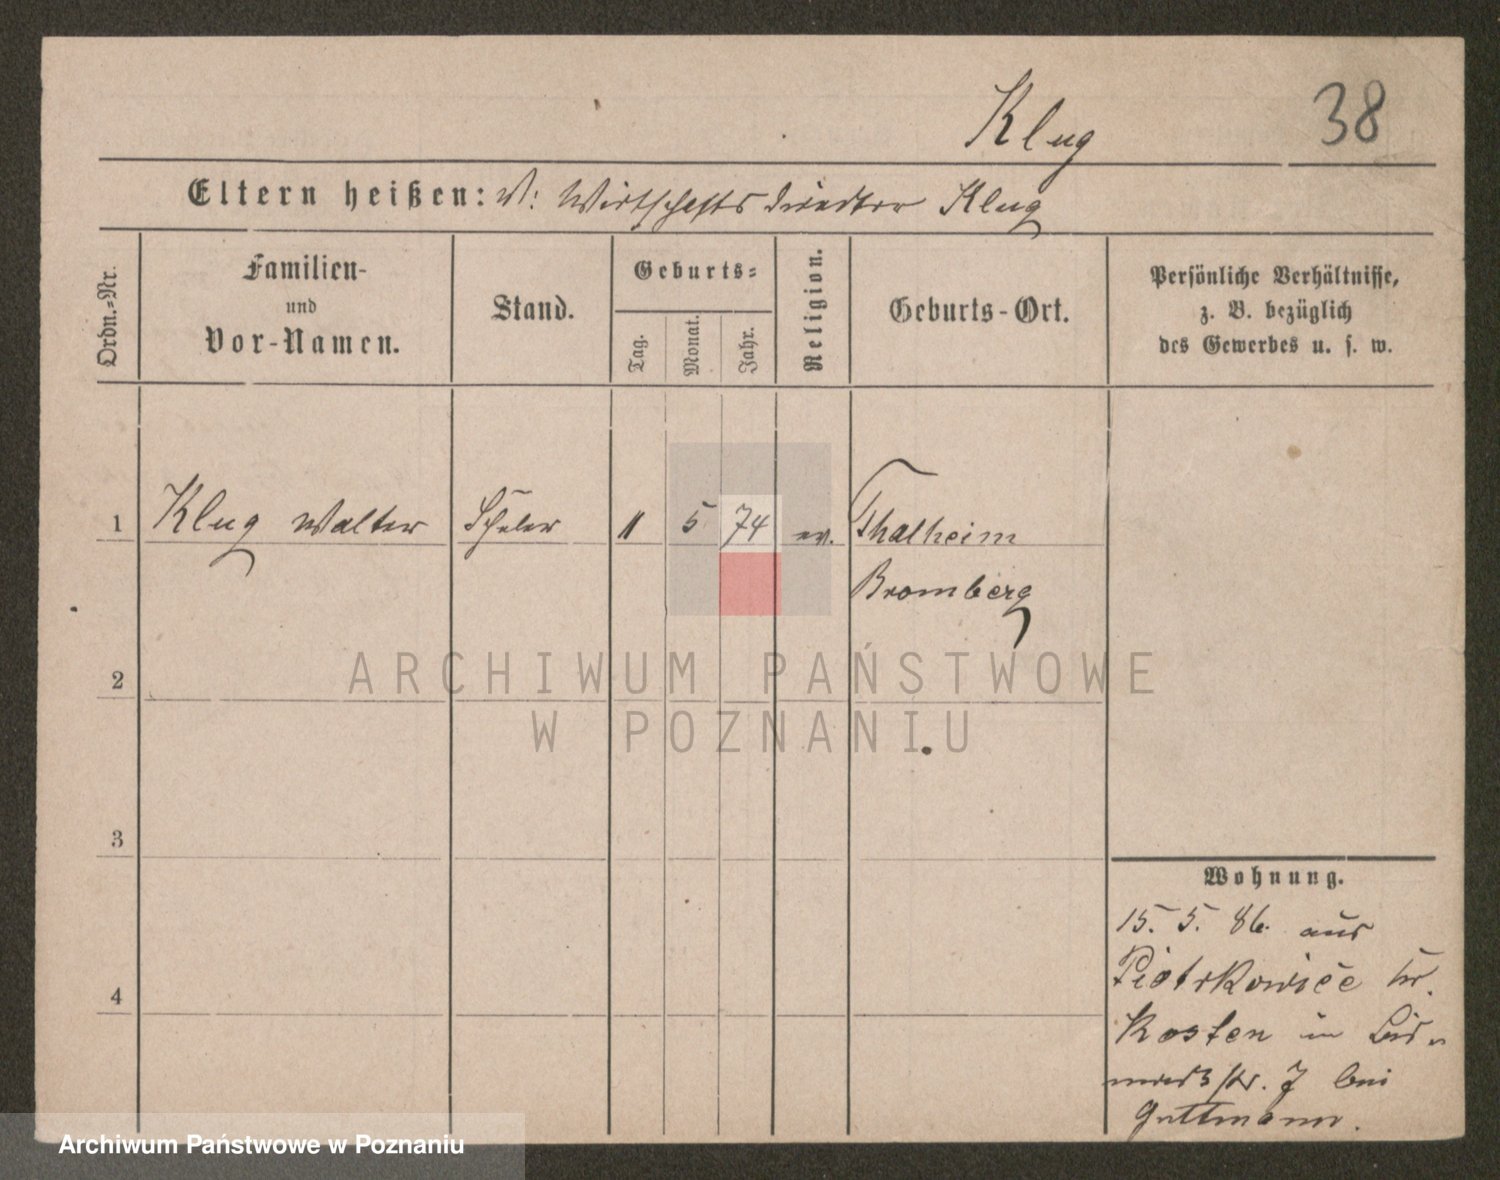 Klug 38
Eltern heißen: V: Wirthschaftsdirector Klug
Ordn.-Nr.
Familien-
und
Vor-Namen.
Stand.
Geburts-
Tag.
Monat.
Jahr.
Religion.
Geburts-Ort.
Persönliche Verhältnisse,
z. B. bezüglich
des Gewerbes u. s. w.
1 Klug Walter Schüler 11 5 74 ev. Thalheim
Bromberg
2
3
4
Wohnung.
15. 5. 86. aus
Piotrkowice Kr.
Kosten in Bis-
marckstr. 7 bei
Guttmann.
ARCHIWUM PAŃSTWOWE
W POZNANIU
Archiwum Państwowe w Poznaniu